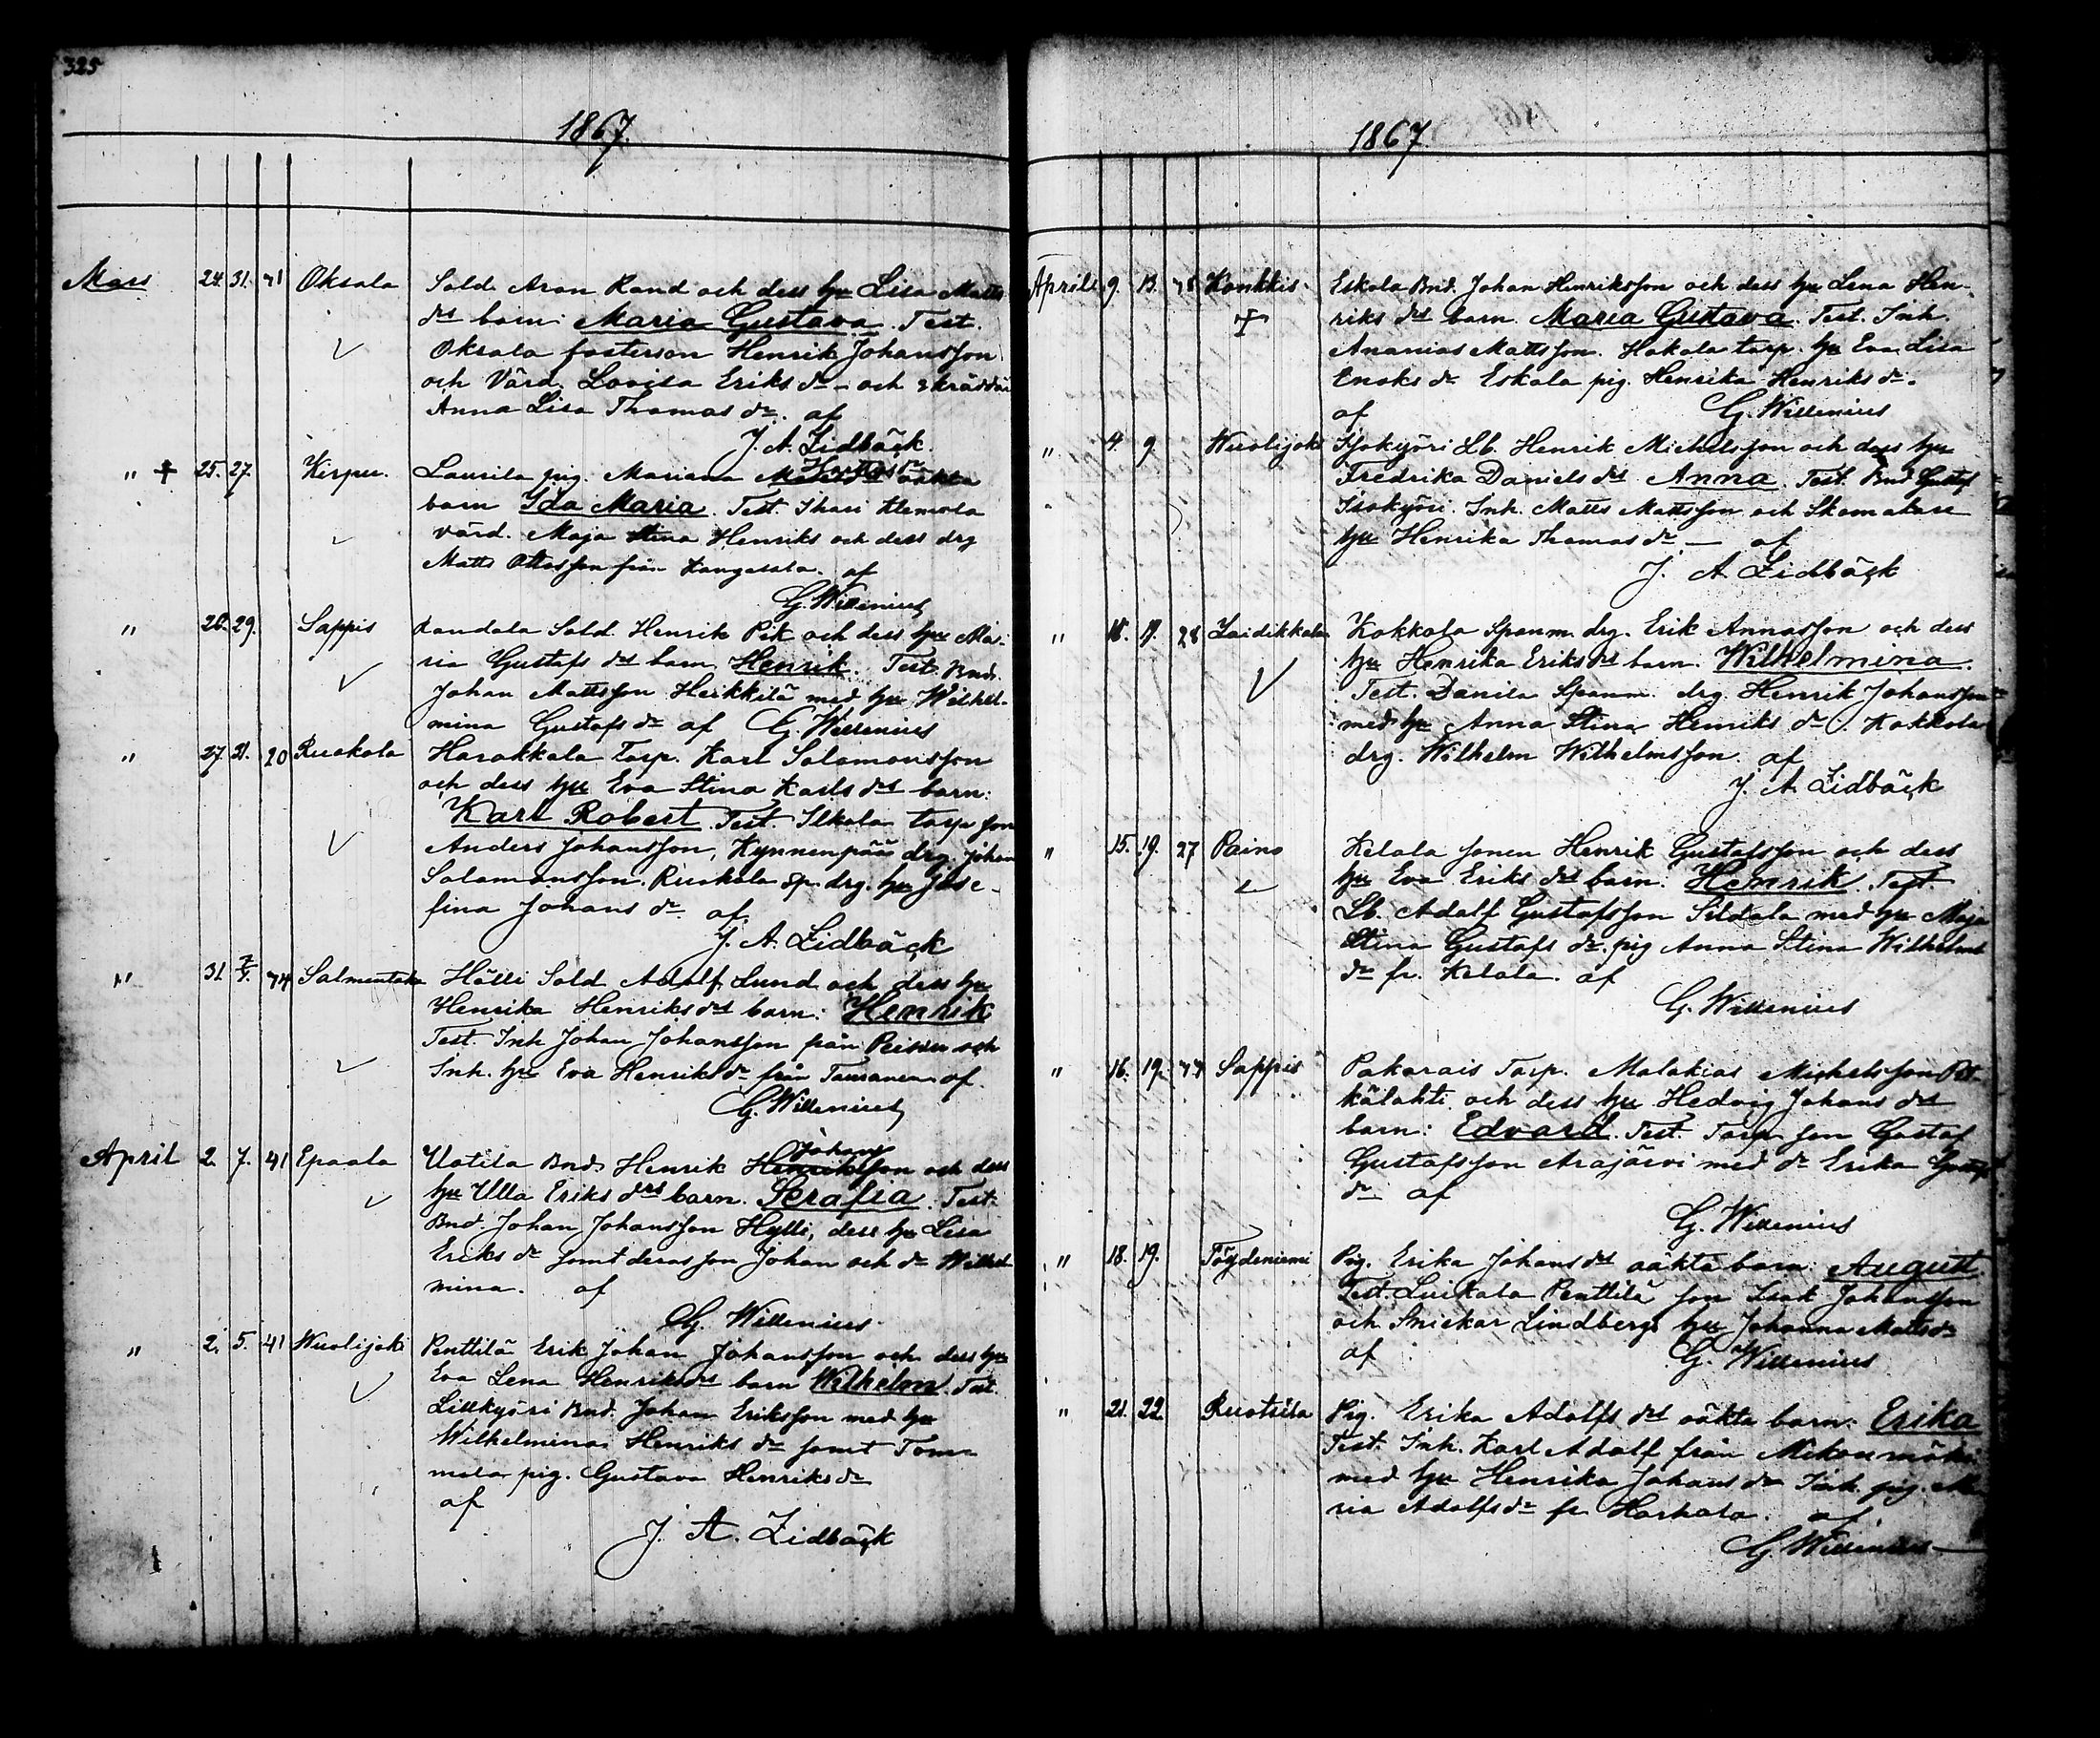 325
1867.
Mars 24. 31. 41 Oksala Sold. Aron Rand och dess hu Lisa Matts
drs barn: Maria Gustava. Test.
Oksala fosterson Henrik Johansson
och Värd. Lovisa Eriks dr - och skräddar
Anna Lisa Thomas dr. af
J. A. Lidbäck.
" † 25. 27. Kirpu. Laurila pig. Mariana oäkta
barn Ida Maria. Test Ihari Klemola
värd. Maja Stina Henriks och dess drg
Matts Ottosson från Kangasala. af
G. Willenius
" 26. 29. Sappis Randala Sold. Henrik Pik och dess hu Ma-
ria Gustafs drs barn Henrik. Test. Bnd.
Johan Mattsson Heikkilä med hu Wilhel-
mina Gustafs dr af G. Willenius
" 27. 31. 20 Ruokola Harakkala Torp. Karl Salomonsson
och dess hu Eva Stina Karls drs barn:
Karl Robert. Test. Ilkala torp son
Anders Johansson, Kynnenpää drg. Johan
Salomonsson. Ruokola sp. drg. hu Jose-
fina Johans dr af
J. A. Lidbäck
" 31. 7/4. 44 Salmentaka Hölli Sold Adolf Lund och dess hu
Henrika Henriks drs barn: Henrik
Test. Inh Johan Johansson från och
Inh. hu Eva Henriks dr från af
G. Willenius
April 2. 7. 41 Epaala Uotila Bnd. Henrik Henriksson Johans och dess
hu Ulla Eriks drs barn. Serafia. Test.
Bnd. Johan Johansson Hylli, dess hu Lisa
Eriks dr samt deras son Johan och dr Wilhel-
mina. af
G. Willenius
" 2. 5. 41 Wuolijoki Penttilä Erik Johan Johansson och dess hu
Eva Lena Henriks drs barn Wilhelm. Test.
Lillkyöri Bnd. Johan Eriksson med hu
Wilhelmina Henriks dr samt Tom-
mola pig. Gustava Henriks dr
af
J. A. Lidbäck
1867.
Aprill 9. 13. 48 Konkkis. † Eskola Bnd. Johan Henriksson och dess hu Lena Hen-
riks drs barn. Maria Gustava. Test. Inh.
Ananias Mattsson. Hakala torp. hu Eva Lisa
Enoks dr Eskola pig. Henrika Henriks dr.
af G. Willenius
" 4. 9. Wuolijoki Isokyöri Lb. Henrik Michelsson och dess hu
Fredrika Daniels drs Anna. Test. Bnd Gustaf
Isokyöri. Inh. Matts Mattsson och Skomakare
hu Henrika Thomas dr — af
J. A. Lidbäck
" 15. 17. 28 Laidikkala Kokkola Spanm. drg. Erik Annasson och dess
hu Henrika Eriks drs barn. Wilhelmina.
Test. Danila Spanm. drg. Henrik Johansson
med hu Anna Stina Henriks dr. Kokkola
drg. Wilhelm Wilhelmsson. af
J. A. Lidbäck
" 15. 19. 27 Paino Kelala sonen Henrik Gustafsson och dess
hu Eva Eriks drs barn. Henrik. Test
Lb. Adolf Gustafsson Sildala med hu Maja
Stina Gustafs dr. pig Anna Stina Wilhelms
dr fr. Kelala. af
G. Willenius
" 16. 19. 44 Sappis Pakarais Torp. Malakias Michelsson Pit-
kälahti och dess hu Hedvig Johans drs
barn: Edvard. Test. Torp. son Gustaf
Gustafsson Arajärvi med dr Erika Gustafs
dr af
G. Willenius
" 18. 19. Töydeniemi Pig. Erika Johans drs oäkta barn. August.
Test. Luikala Penttilä son Isak Johansson
och Snickar Lindbergs hu Johanna Matts dr
af G. Willenius
" 21. 22. Ruotsila Pig. Erika Adolfs drs oäkta barn: Erika
Test. Inh. Karl Adolf från
med hu Henrika Johans dr Inh. pig. Ma-
ria Adolfs dr fr. Harhala. af
G. Willenius